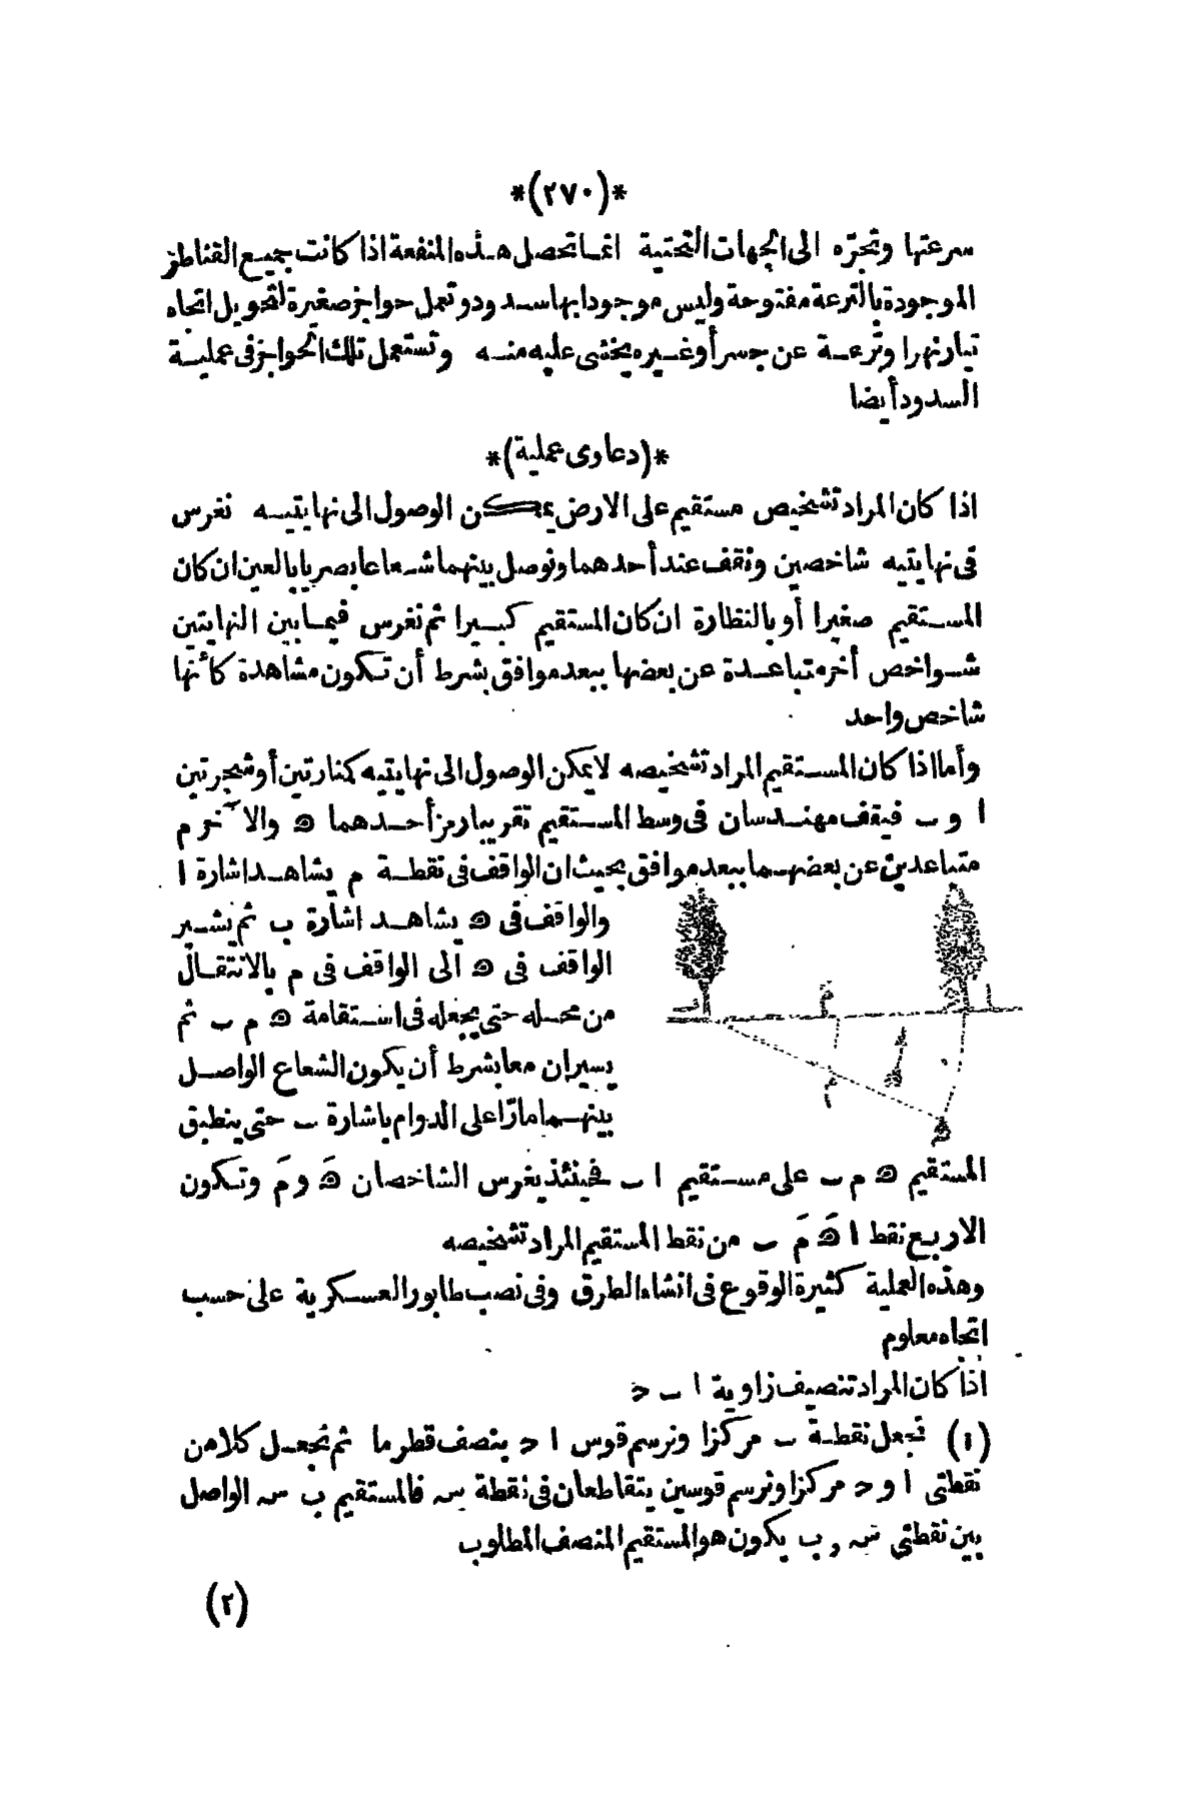 *(٢٧٠)*
سرعتها وتجرّه الى الجهات التحتية انما تحصل هذه المنفعة اذا كانت جميع القناطر
الموجودة بالترعة مفتوحة وليس موجودا بها سدود وتعمل حواجز صغيرة لتحويل اتجاه
تيار نهر او ترعة عن جسر أو غيره يخشى عليه منه وتستعمل تلك الحواجز فى عملية
السدود أيضا
*(دعاوى عملية)*
اذا كان المراد تشخيص مستقيم على الارض يمكن الوصول الى نهايتيه نغرس
فى نهايتيه شاخصين ونقف عند أحدهما ونوصل بينهما شعاعا بصريا بالعين ان كان
المستقيم صغيرا أو بالنظارة ان كان المستقيم كبيرا ثم نغرس فيما بين النهايتين
شواخص أخر متباعدة عن بعضها ببعد موافق بشرط أن تكون مشاهدة كأنها
شاخص واحد
وأما اذا كان المستقيم المراد تشخيصه لا يمكن الوصول الى نهايتيه كمنارتين أو شجرتين
ا و ب فيقف مهندسان فى وسط المستقيم تقريبا رمز أحدهما ه والآخر م
متباعدين عن بعضهما ببعد موافق بحيث ان الواقف فى نقطة م يشاهد اشارة ا
والواقف فى ه يشاهد اشارة ب ثم يشير
الواقف فى ه الى الواقف فى م بالانتقال
من محله حتى يجعله فى استقامة ه م ب ثم
يسيران معا بشرط أن يكون الشعاع الواصل
بينهما مارّا على الدوام باشارة ب حتى ينطبق
المستقيم ه م ب على مستقيم ا ب فحينئذ يغرس الشاخصان هَ و مَ وتكون
الاربع نقط ا هَ مَ ب من نقط المستقيم المراد تشخيصه
وهذه العملية كثيرة الوقوع فى انشاء الطرق وفى نصب طابور العسكرية على حسب
اتجاه معلوم
اذا كان المراد تنصيف زاوية ا ب ح
(١) نجعل نقطة ب مركزا ونرسم قوس ا ح بنصف قطر ما ثم نجعل كلا من
نقطتى ا و ح مركزا ونرسم قوسين يتقاطعان فى نقطة س فالمستقيم ب س الواصل
بين نقطتى س و ب يكون هو المستقيم المنصف المطلوب
(٢)